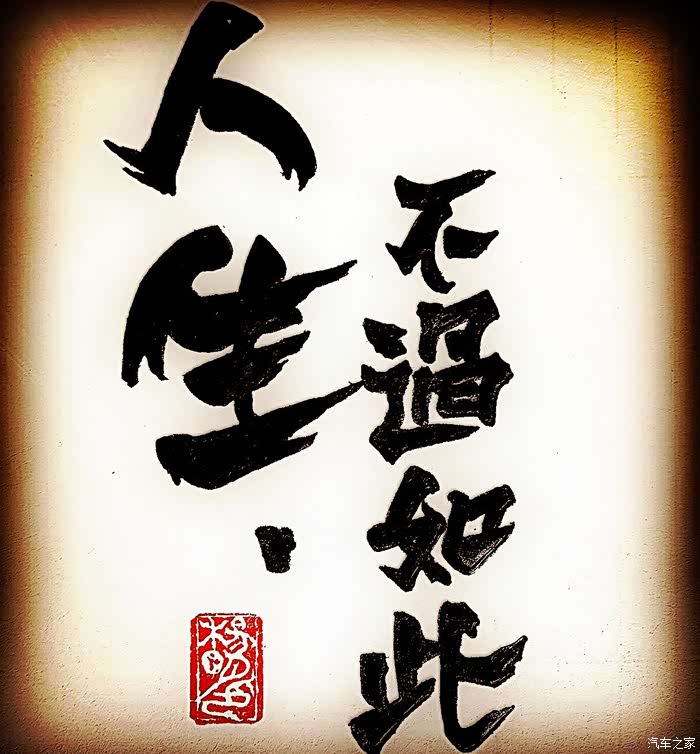 人生.
不過如此
汽车之家